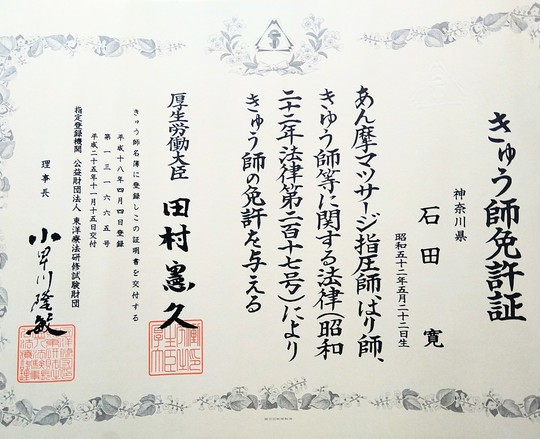 きゅう師免許証
神奈川県
石田 寛
昭和五十二年五月二十二日生
あん摩マツサージ指圧師、はり師、
きゆう師等に関する法律(昭和
二十二年法律第二百十七号)により
きゅう師の免許を与える
厚生労働大臣 田村憲久
きゅう師名簿に登録しこの証明書を交付する
平成十八年四月四日登録
第一三一六六五号
平成二十五年十一月十五日交付
指定登録機関 公益財団法人 東洋療法研修試験財団
理事長 小早川隆敏